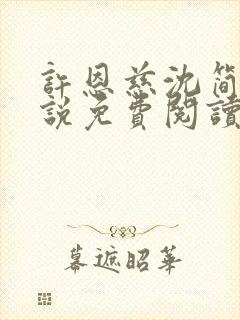 許恩慈沈簡
說免費閱讀
幕遮昭華